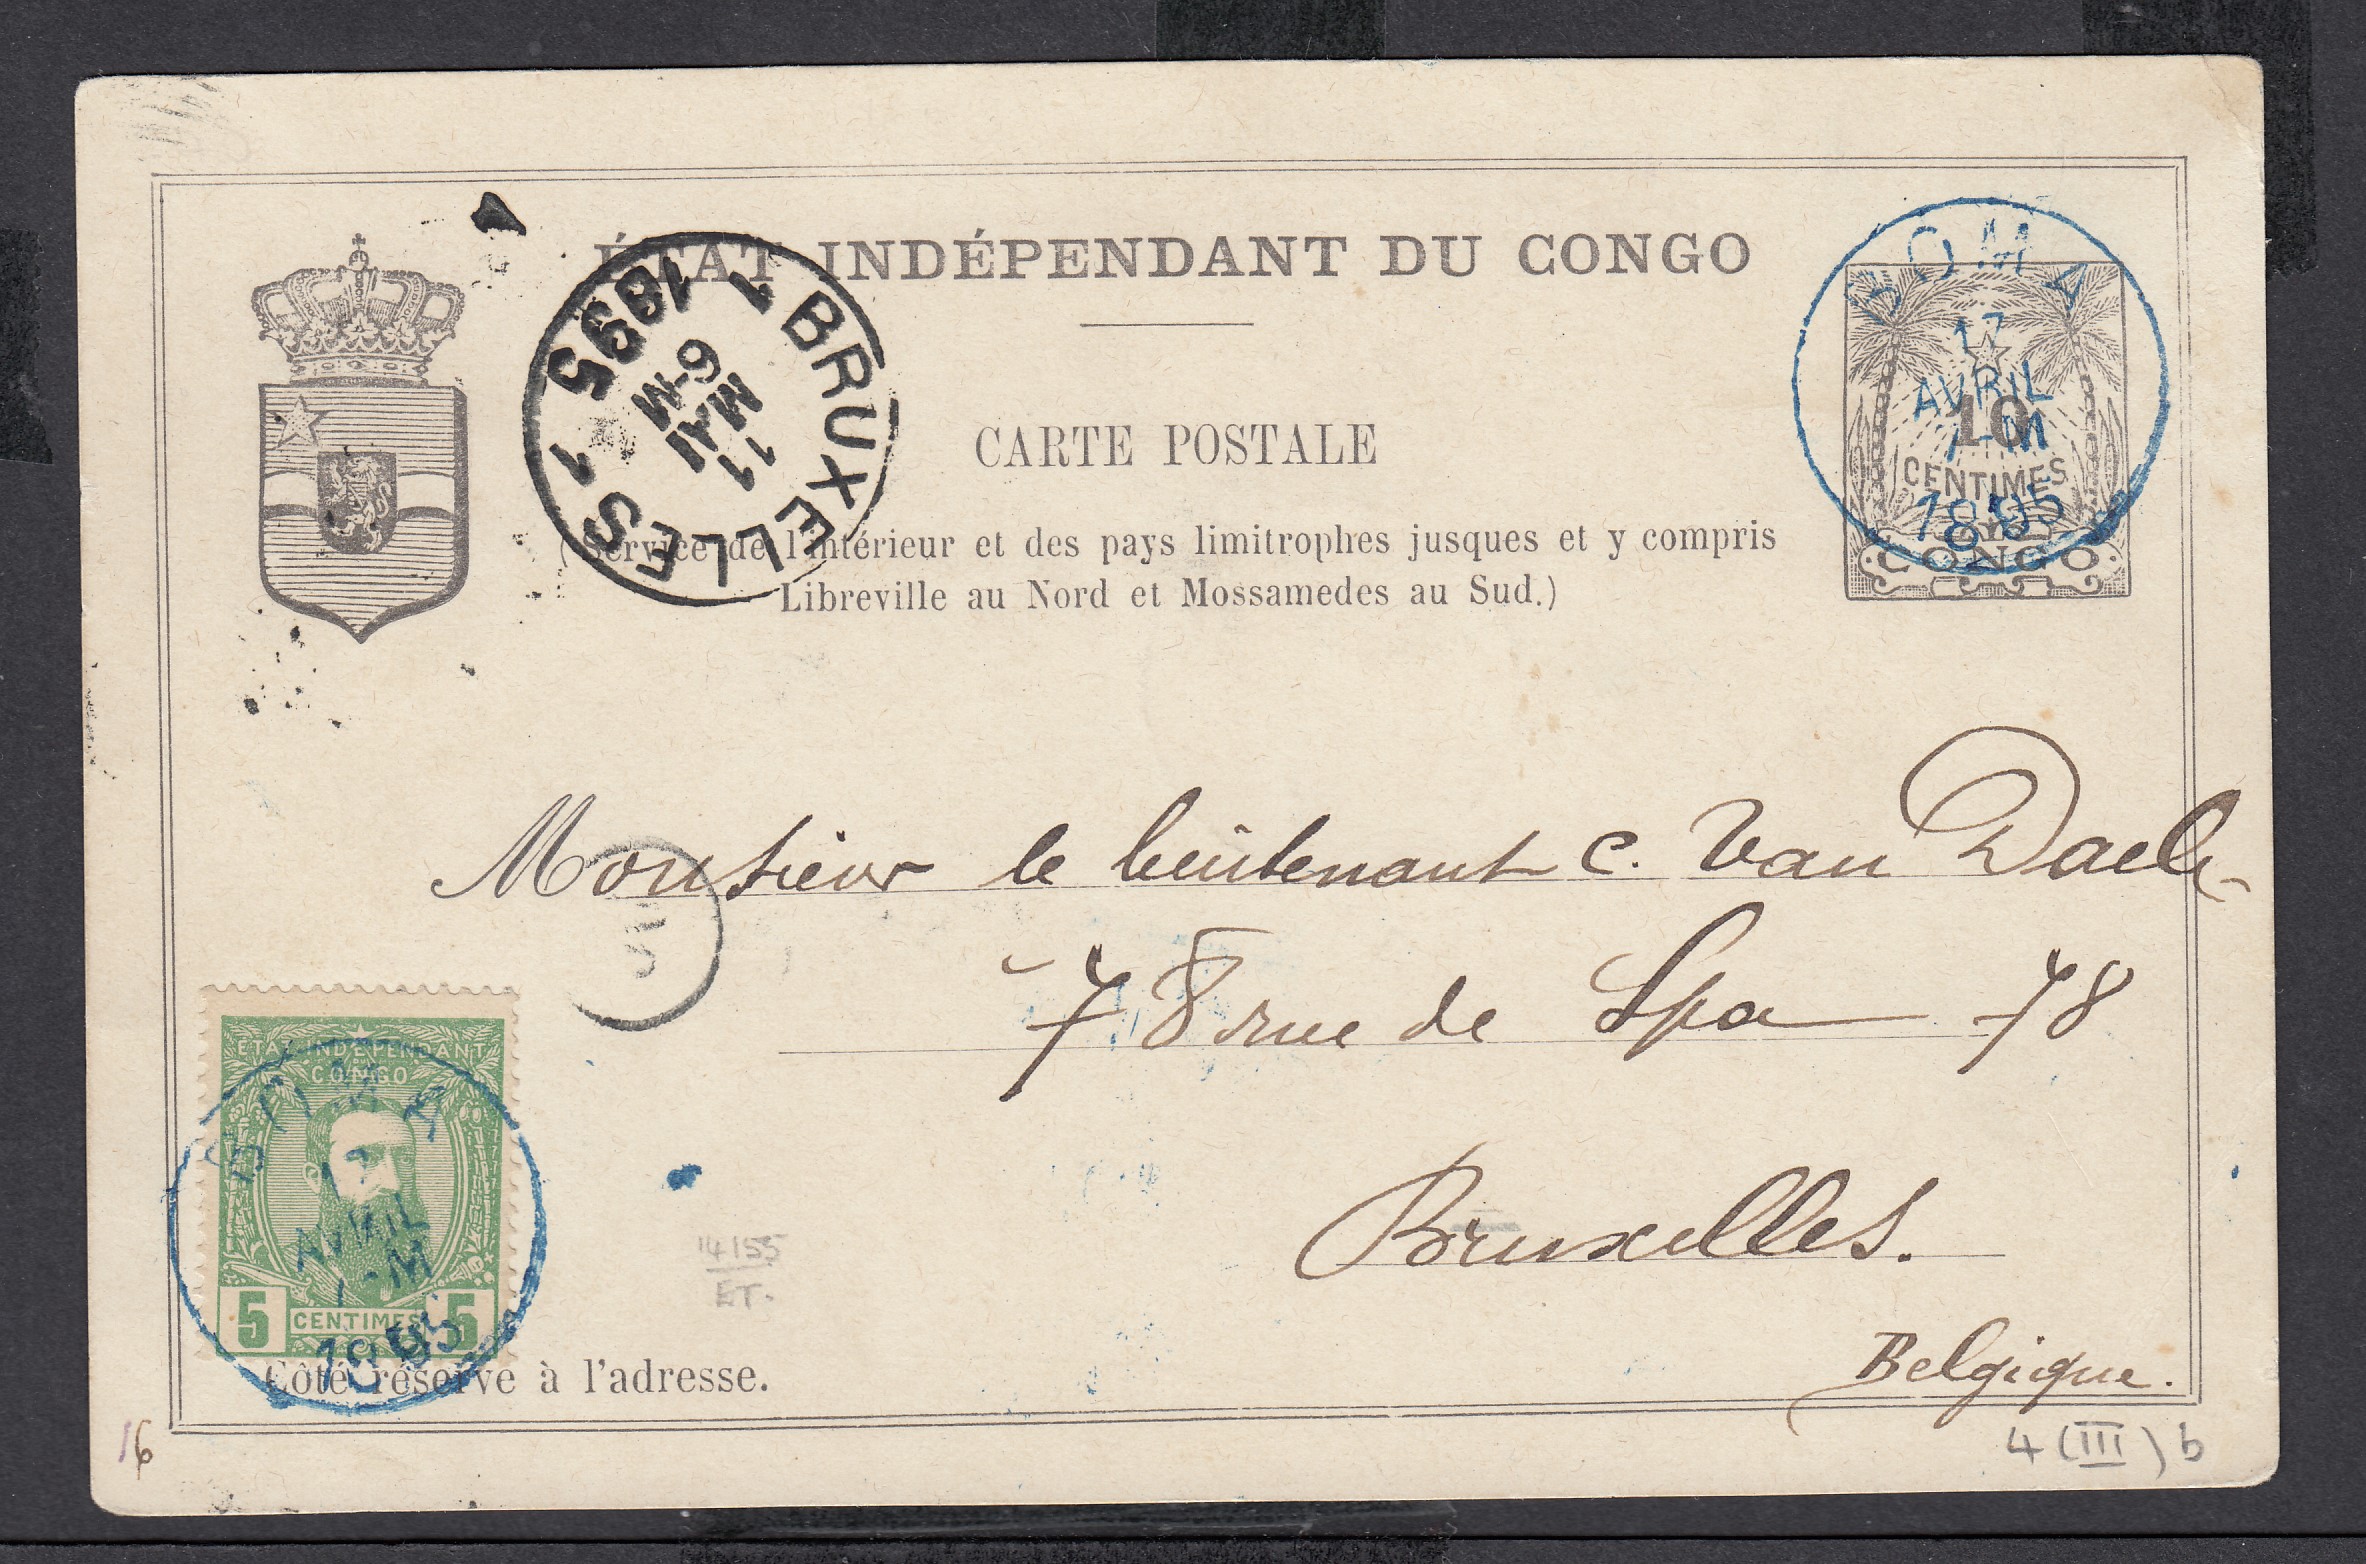 ÉTAT INDÉPENDANT DU CONGO
CARTE POSTALE
(Service de l'intérieur et des pays limitrophes jusques et y compris
Libreville au Nord et Mossamedes au Sud.)
1 BRUXELLES 1
11
MAI
6-M
1895
BOMA
17
AVRIL
1-M
1895
10
CENTIMES
CONGO
Monsieur le lieutenant C. Van Daele
78 rue de Spa 78
Bruxelles.
Belgique.
ÉTAT INDÉPENDANT
DU
CONGO
5 CENTIMES 5
BOMA
17
AVRIL
1-M
1895
14155
ET.
Côté réservé à l'adresse.
16
4 (III) b